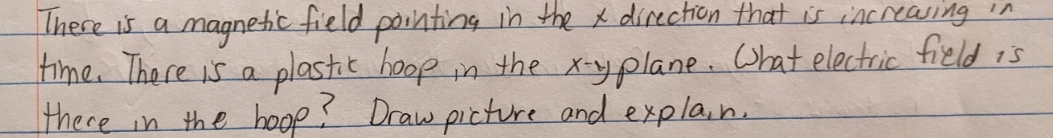 There is a magnetic field pointing in the x direction that is increasing in
time. There is a plastic hoop in the x-y plane. What electric field is
there in the hoop? Draw picture and explain.